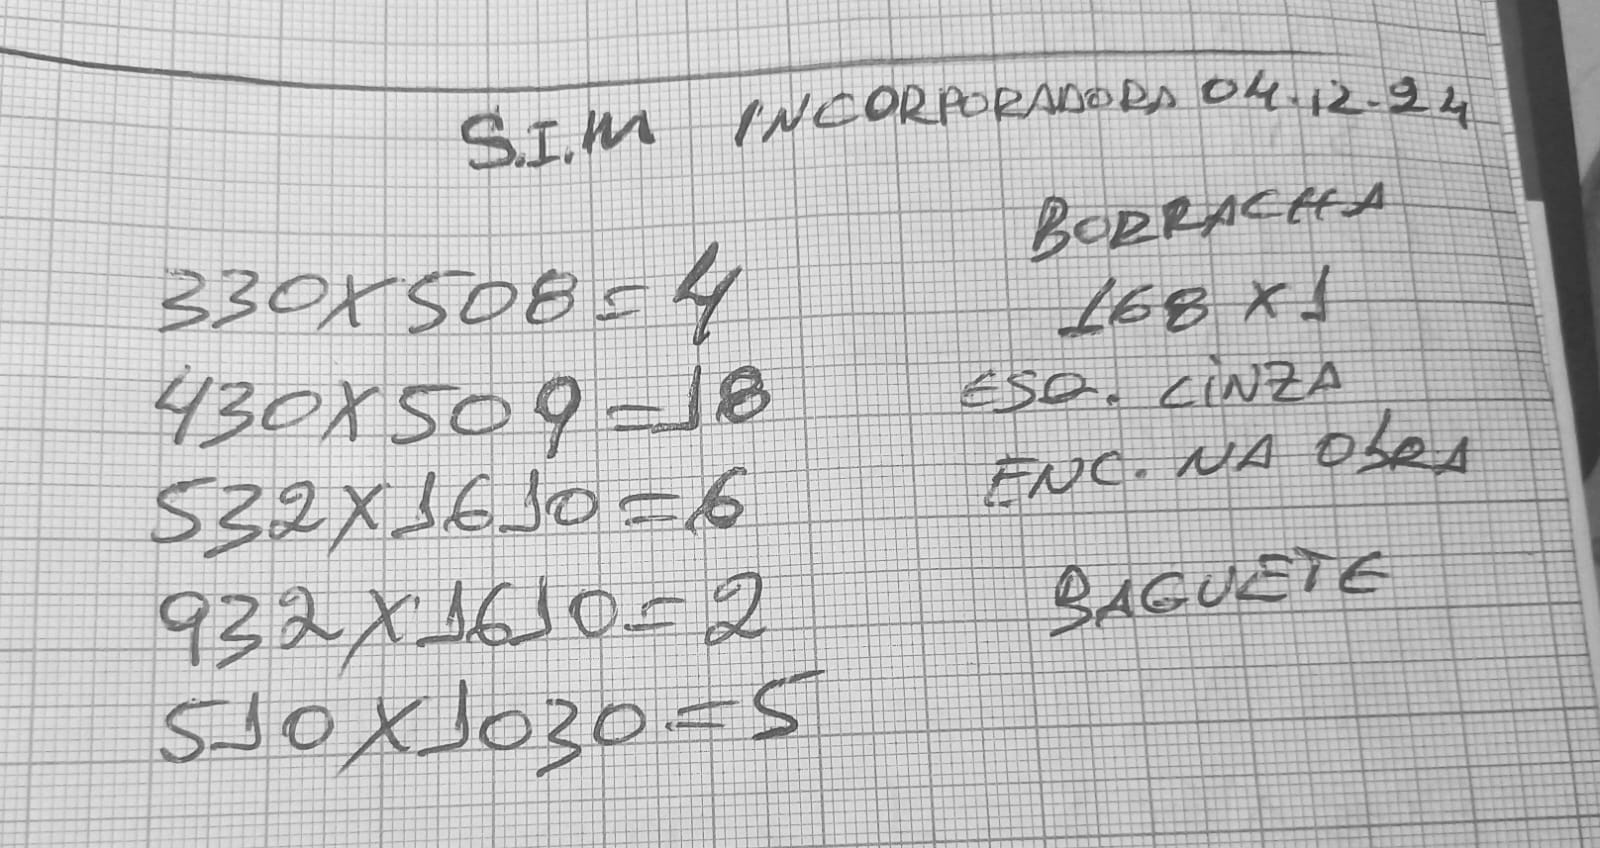 S.I.M INCORPORADORA 04.12.24
330X508=4
430X509=18
532X1610=6
932X1610=2
510X1030=5
BORRACHA
168 X 1
ESQ. CINZA
ENC. NA ObRA
BAGUETE